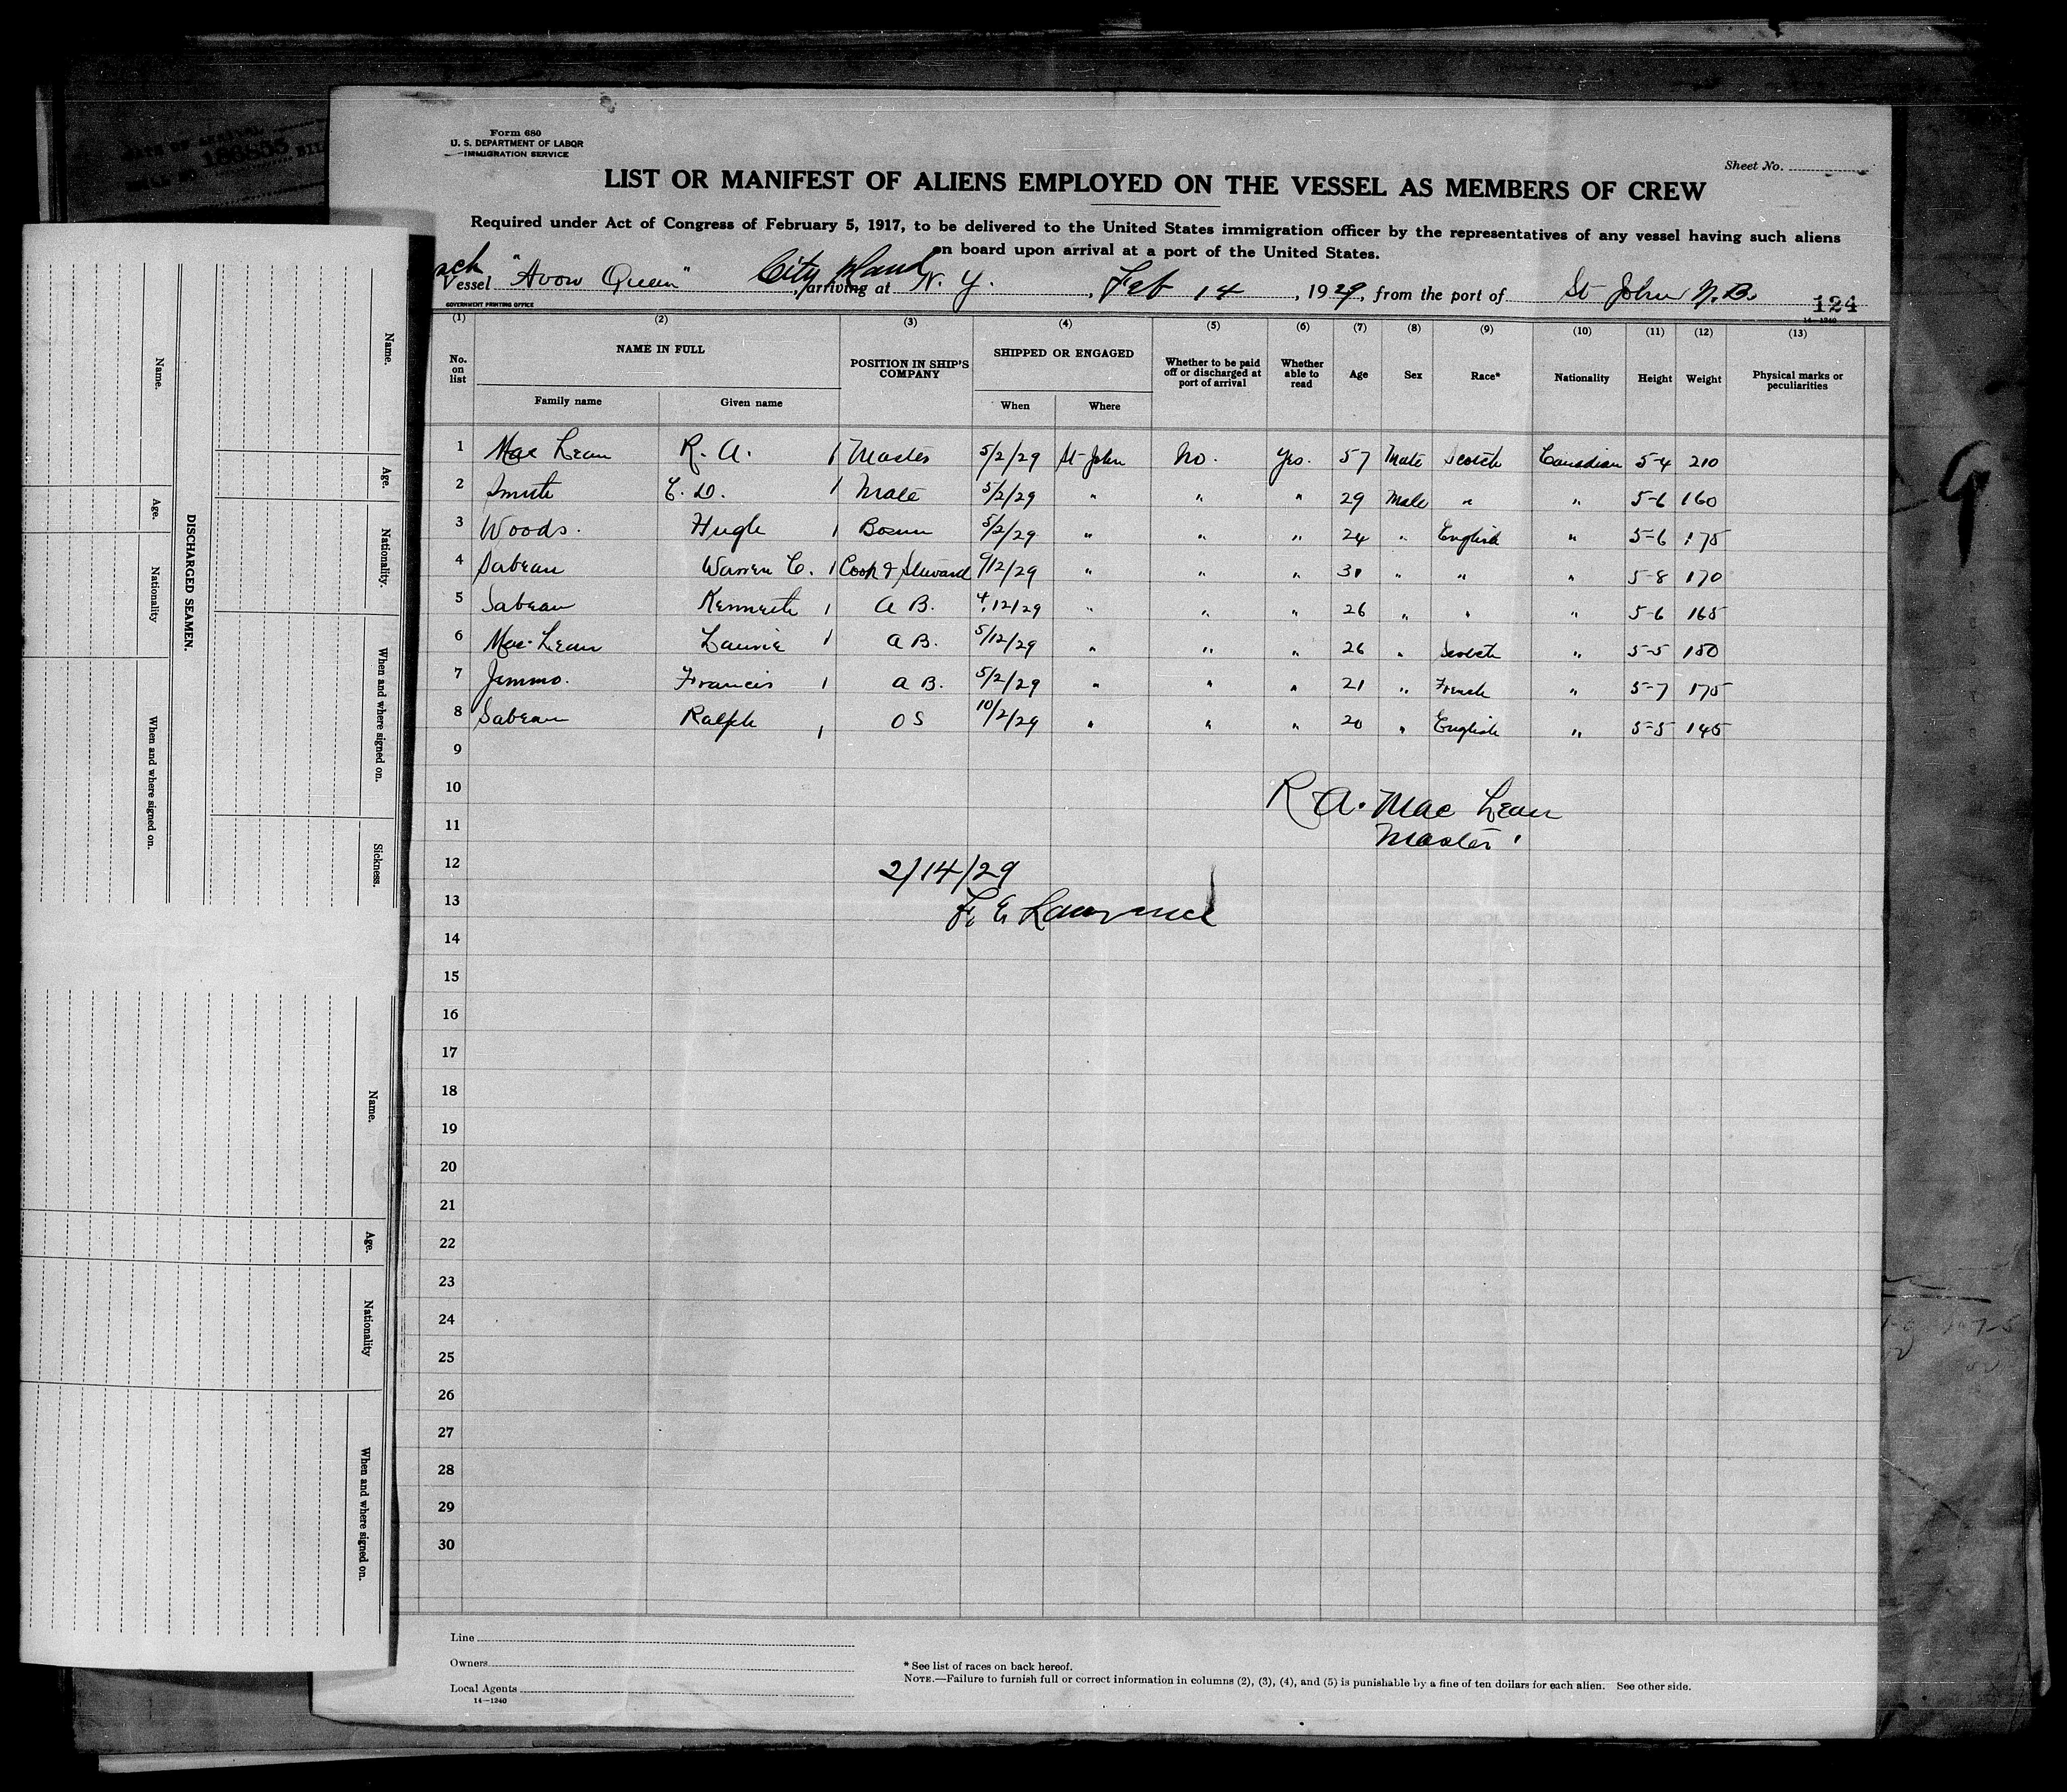 Form 680
U. S. DEPARTMENT OF LABOR
IMMIGRATION SERVICE
Sheet No.
LIST OR MANIFEST OF ALIENS EMPLOYED ON THE VESSEL AS MEMBERS OF CREW
Required under Act of Congress of February 5, 1917, to be delivered to the United States immigration officer by the representatives of any vessel having such aliens
on board upon arrival at a port of the United States.
sch
Vessel "Avon Queen" arriving at City Island N. Y. , Feb 14 , 1929, from the port of St John N.B.
124
GOVERNMENT PRINTING OFFICE
14—1240
(1) (2) (3) (4) (5) (6) (7) (8) (9) (10) (11) (12) (13)
No. on list NAME IN FULL POSITION IN SHIP'S COMPANY SHIPPED OR ENGAGED Whether to be paid off or discharged at port of arrival Whether able to read Age Sex Race* Nationality Height Weight Physical marks or peculiarities
Family name Given name When Where
1 Mac Lean R. A. 1 Master 5/2/29 St John No. Yes. 57 Male Scotch Canadian 5-4 210
2 Smith E. D. 1 Mate 5/2/29 " " " 29 Male " " 5-6 160
3 Woods. Hugh 1 Bosun 5/2/29 " " " 24 " English " 5-6 175
4 Sabean Warren C. 1 Cook & Steward 9/12/29 " " " 31 " " " 5-8 170
5 Sabean Kenneth 1 A B. 4/12/29 " " " 26 " " " 5-6 165
6 Mac Lean Laurie 1 A B. 5/12/29 " " " 26 " Scotch " 5-5 150
7 Jimmo. Francis 1 A B. 5/2/29 " " " 21 " French " 5-7 175
8 Sabean Ralph 1 O S 10/2/29 " " " 20 " English " 5-5 145
9
10
11
12
13
14
15
16
17
18
19
20
21
22
23
24
25
26
27
28
29
30
R A. Mac Lean
Master
2/14/29
F. E. Lawrence
Line
Owners
Local Agents
14—1240
* See list of races on back hereof.
NOTE.—Failure to furnish full or correct information in columns (2), (3), (4), and (5) is punishable by a fine of ten dollars for each alien. See other side.
DISCHARGED SEAMEN.
Name. Age. Nationality. When and where signed on. Sickness.
Name. Age. Nationality When and where signed on.
Name. Age. Nationality When and where signed on.
188855